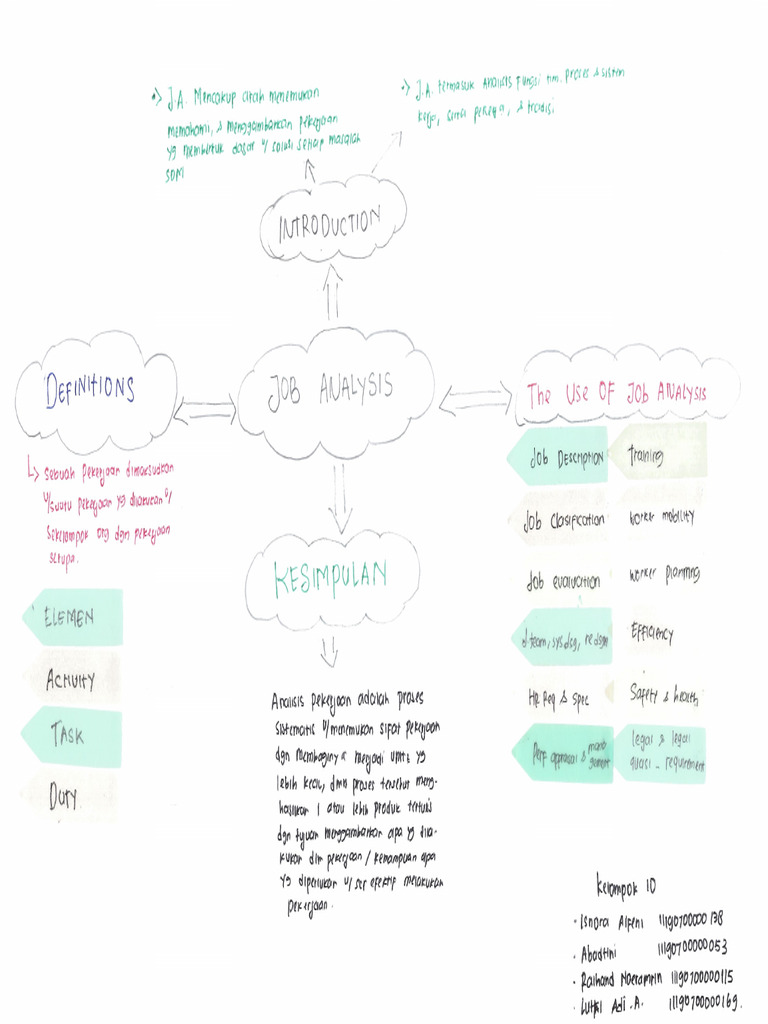 •> J.A. Mencakup arah menemukan
memahami, & menggambarkan pekerjaan
yg membentuk dasar u/ solusi setiap masalah
SDM
•> J.A. termasuk Analisis Fungsi tim, proses & sistem
kerja, pekerja, &
INTRODUCTION
DEFINITIONS
JOB ANALYSIS
The Use OF Job ANALYSIS
↳ Sebuah pekerjaan dimaksudkan
u/suatu pekerjaan yg dilakukan o/
Sekelompok org dgn pekerjaan
serupa.
ELEMEN
ACTIVITY
TASK
DUTY
KESIMPULAN
Analisis pekerjaan adalah proses
sistematis u/menemukan sifat pekerjaan
dgn membaginya menjadi units yg
lebih kecil, dmn proses tersebut meng-
hasilkan 1 atau lebih produk tertulis
dgn tujuan menggambarkan apa yg dila-
kukan dlm pekerjaan / kemampuan apa
yg diperlukan u/ scr efektif melakukan
pekerjaan.
Job DESCRIPTION
Training
Job Clasification
Worker mobility
Job evaluation
Worker planning
d.team, sys dsg, re dsgn
EFFiciency
HR Req & Spec
Safety & health
Perf appraisal & mana gement
legal & legal
quasi - requirement
Kelompok 10
• Isnora Alfeni 11190700000138
• Abadtini 11190700000053
• Raihand 11190700000115
• Lutfi Adi .A. 11190700000169.